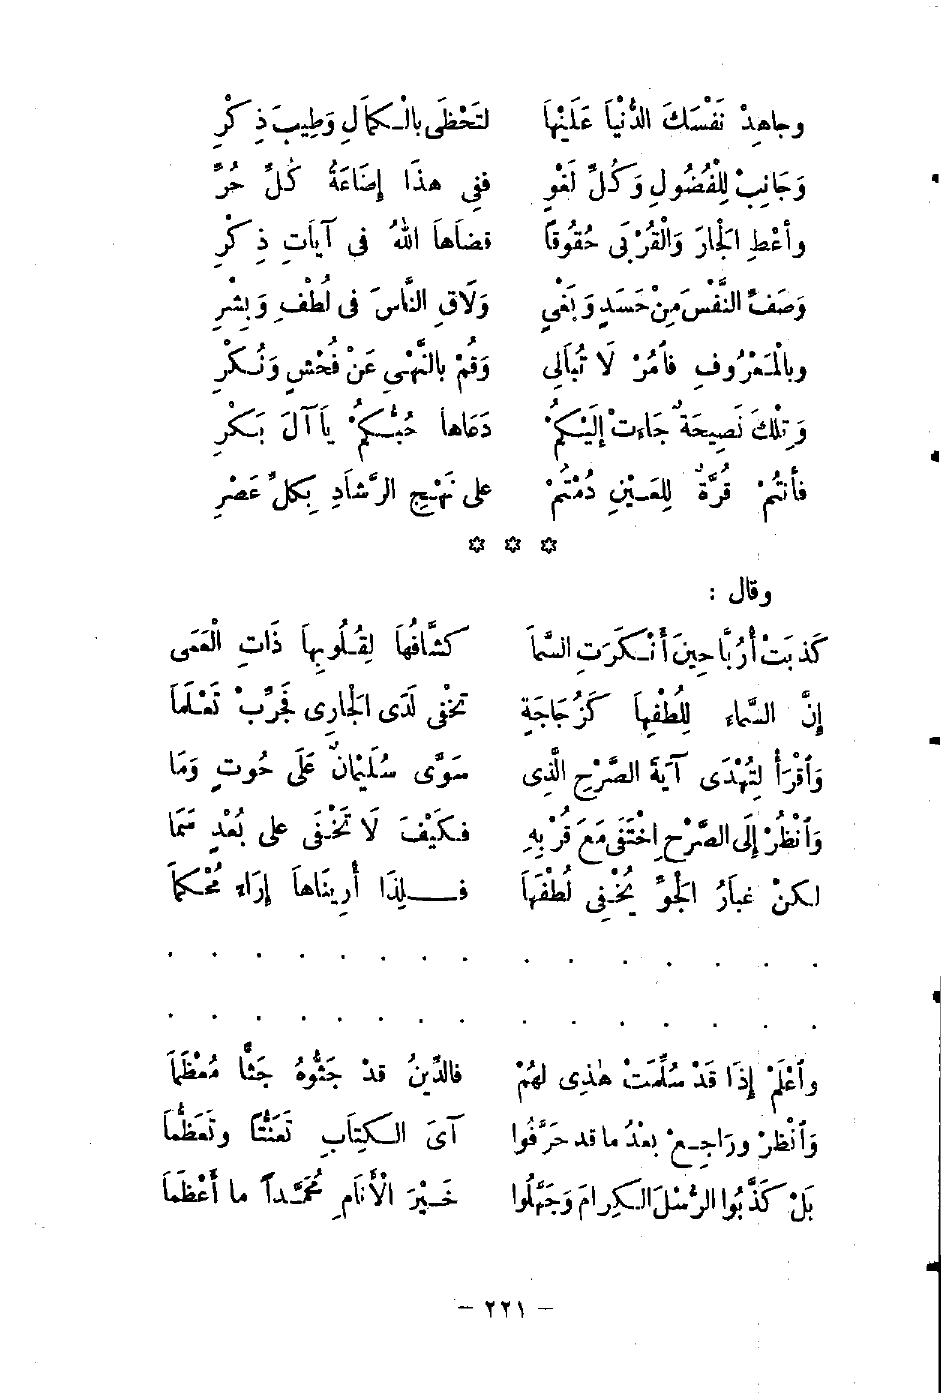 وجاهِدْ نَفْسَكَ الدُّنْيَا عَلَيْهَا لتَحْظَى بالْكمَالِ وَطِيبَ ذِكْرِ
وَجَانِبْ لِلْفُضُولِ وَكُلِّ لَغْوٍ ففِى هذَا إضَاعَةُ كُلِّ حُرِّ
وأعْطِ الجَارَ وَالْقُرْبَى حُقُوقاً قضَاهاَ اللهُ فى آيَاتِ ذِكْرِ
وَصَفِّ النَّفْسَ مِنْ حَسَدٍ وَبَغْيٍ وَلَاقِ النَّاسَ فى لُطْفٍ وَبِشْرِ
وبالْمَعْرُوفِ فأمُرْ لَا تُبَالِى وَقُمْ بالنَّهْىِ عَنْ فُحْشٍ وَنُكْرِ
وَتِلْكَ نَصِيحَةٌ جَاءتْ إلَيْكُمْ دَعَاهاَ حُبُّكُمْ ياَ آلَ بَكْرِ
فأنتُمْ قُرَّةٌ لِلعَيْنِ دُمْتُمْ على نَهْجِ الرَّشاَدِ بِكلِّ عَصْرِ
* * *
وقال :
كَذبَتْ أُرُبَّا حِينَ أَنْكَرَتِ السَّمَا كشَّافُهاَ لِقُلُوبِهاَ ذَاتِ الْعَمَى
إنَّ السَّماء لِلُطْفِهاَ كَزُجَاجَةٍ تخْفى لَدَى الجَارِى فَجَرِّبْ تَعْلَمَا
وَاقْرَأْ لِتُهْدَى آيَةَ الصَّرْحِ الَّذِى سَوَّى سُلَيْمَانٌ عَلَى حُوتٍ وَمَا
وَانْظُرْ إلَى الصَّرْحِ اخْتَفَى مَعَ قُرْبِهِ فكَيْفَ لَا تَخْفَى على بُعْدٍ سَمَا
لكنْ غبَارُ الجْوِّ يُخْفِى لُطْفَهَا فلِذَا أُرِينَاهاَ إرَاءً مُحْكماَ
. . . . . . . . . . . . . . .
. . . . . . . . . . . . . . .
واعْلَمْ إذَا قَدْ سُلِّمَتْ هٰذِى لهُمْ فالدِّينُ قدْ جَثُّوهُ جَثًّا مُعْظَمَا
وَانْظرْ ورَاجِعْ بعْدُ ما قد حَرَّفُوا آىَ الكتَابِ تَعَنُّتًا وتَعَظُّمَا
بَلْ كَذَّبُوا الرُّسْلَ الكِرامَ وَجَهَّلُوا خَيْرَ الْأَنَامِ مُحَمَّداً ما أَعْظَمَا
– ٢٢١ –